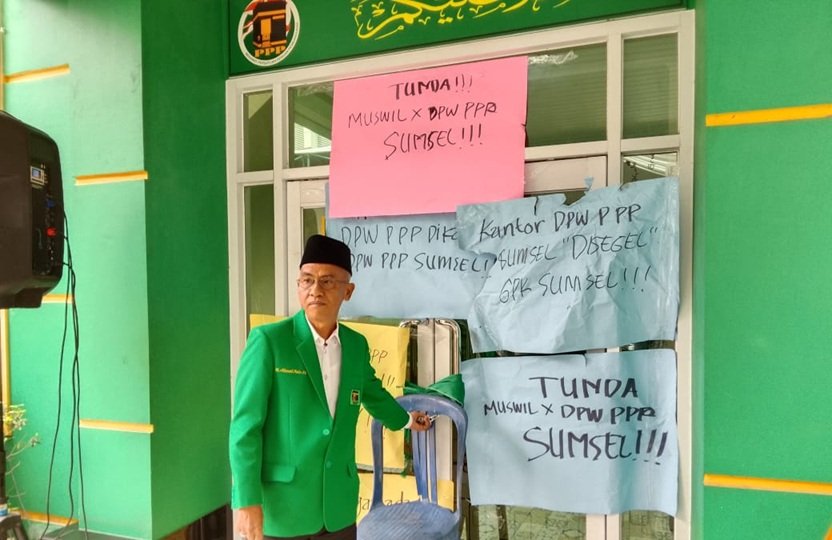 PPP
TUNDA!!!
MUSWIL X DPW PPP
SUMSEL!!!
DPW PPP
DPW PPP SUMSEL
Kantor DPW PPP
SUMSEL "DISEGEL"
GPK SUMSEL!!!
PPP
TUNDA
MUSWIL X DPW PPP
SUMSEL!!!